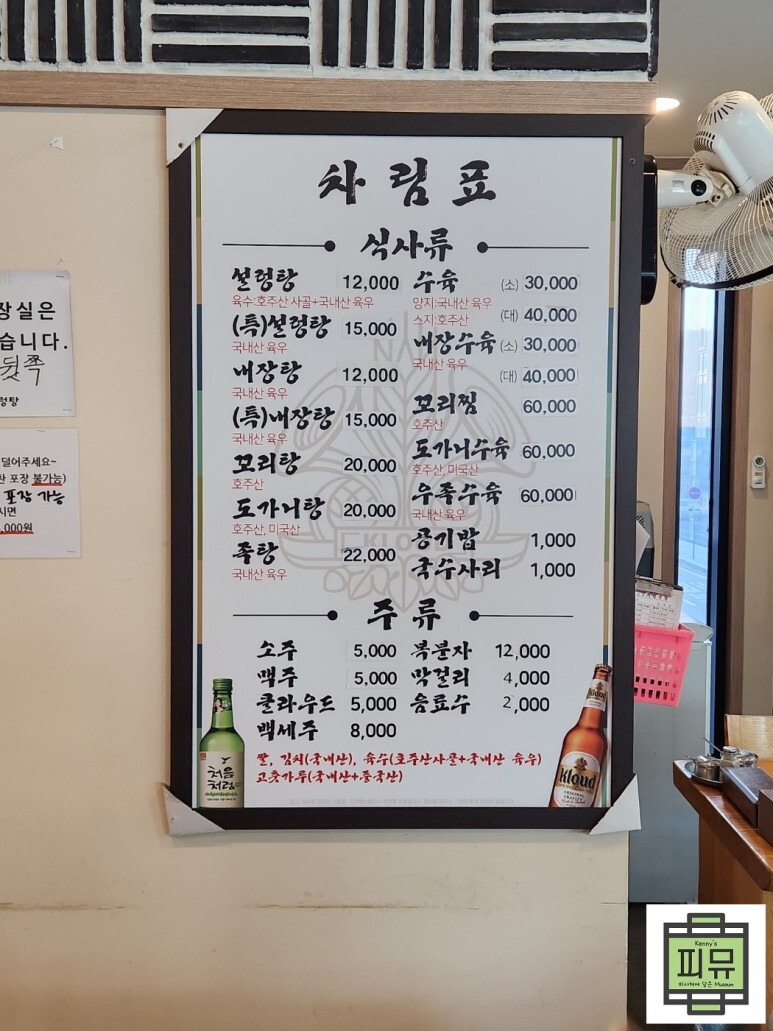 차림표
식사류
설렁탕 12,000
육수:호주산 사골+국내산 육우
(특)설렁탕 15,000
국내산 육우
내장탕 12,000
국내산 육우
(특)내장탕 15,000
국내산 육우
꼬리탕 20,000
호주산
도가니탕 20,000
호주산, 미국산
족탕 22,000
국내산 육우
수육 (소) 30,000
양지:국내산 육우
스지:호주산
(대) 40,000
내장수육 (소) 30,000
국내산 육우
(대) 40,000
꼬리찜 60,000
호주산
도가니수육 60,000
호주산, 미국산
우족수육 60,000
국내산 육우
공기밥 1,000
국수사리 1,000
주류
소주 5,000
맥주 5,000
클라우드 5,000
백세주 8,000
복분자 12,000
막걸리 4,000
음료수 2,000
쌀, 김치(국내산), 육수(호주산사골+국내산 육우)
고춧가루(국내산+중국산)
처음
처럼
Kloud
Kloud
장실은
습니다.
뒷쪽
렁탕
덜어주세요~
산 포장 불가능)
포장 가능
시면
,000원
Kenny's
피뮤
피사체에 담은 Museum